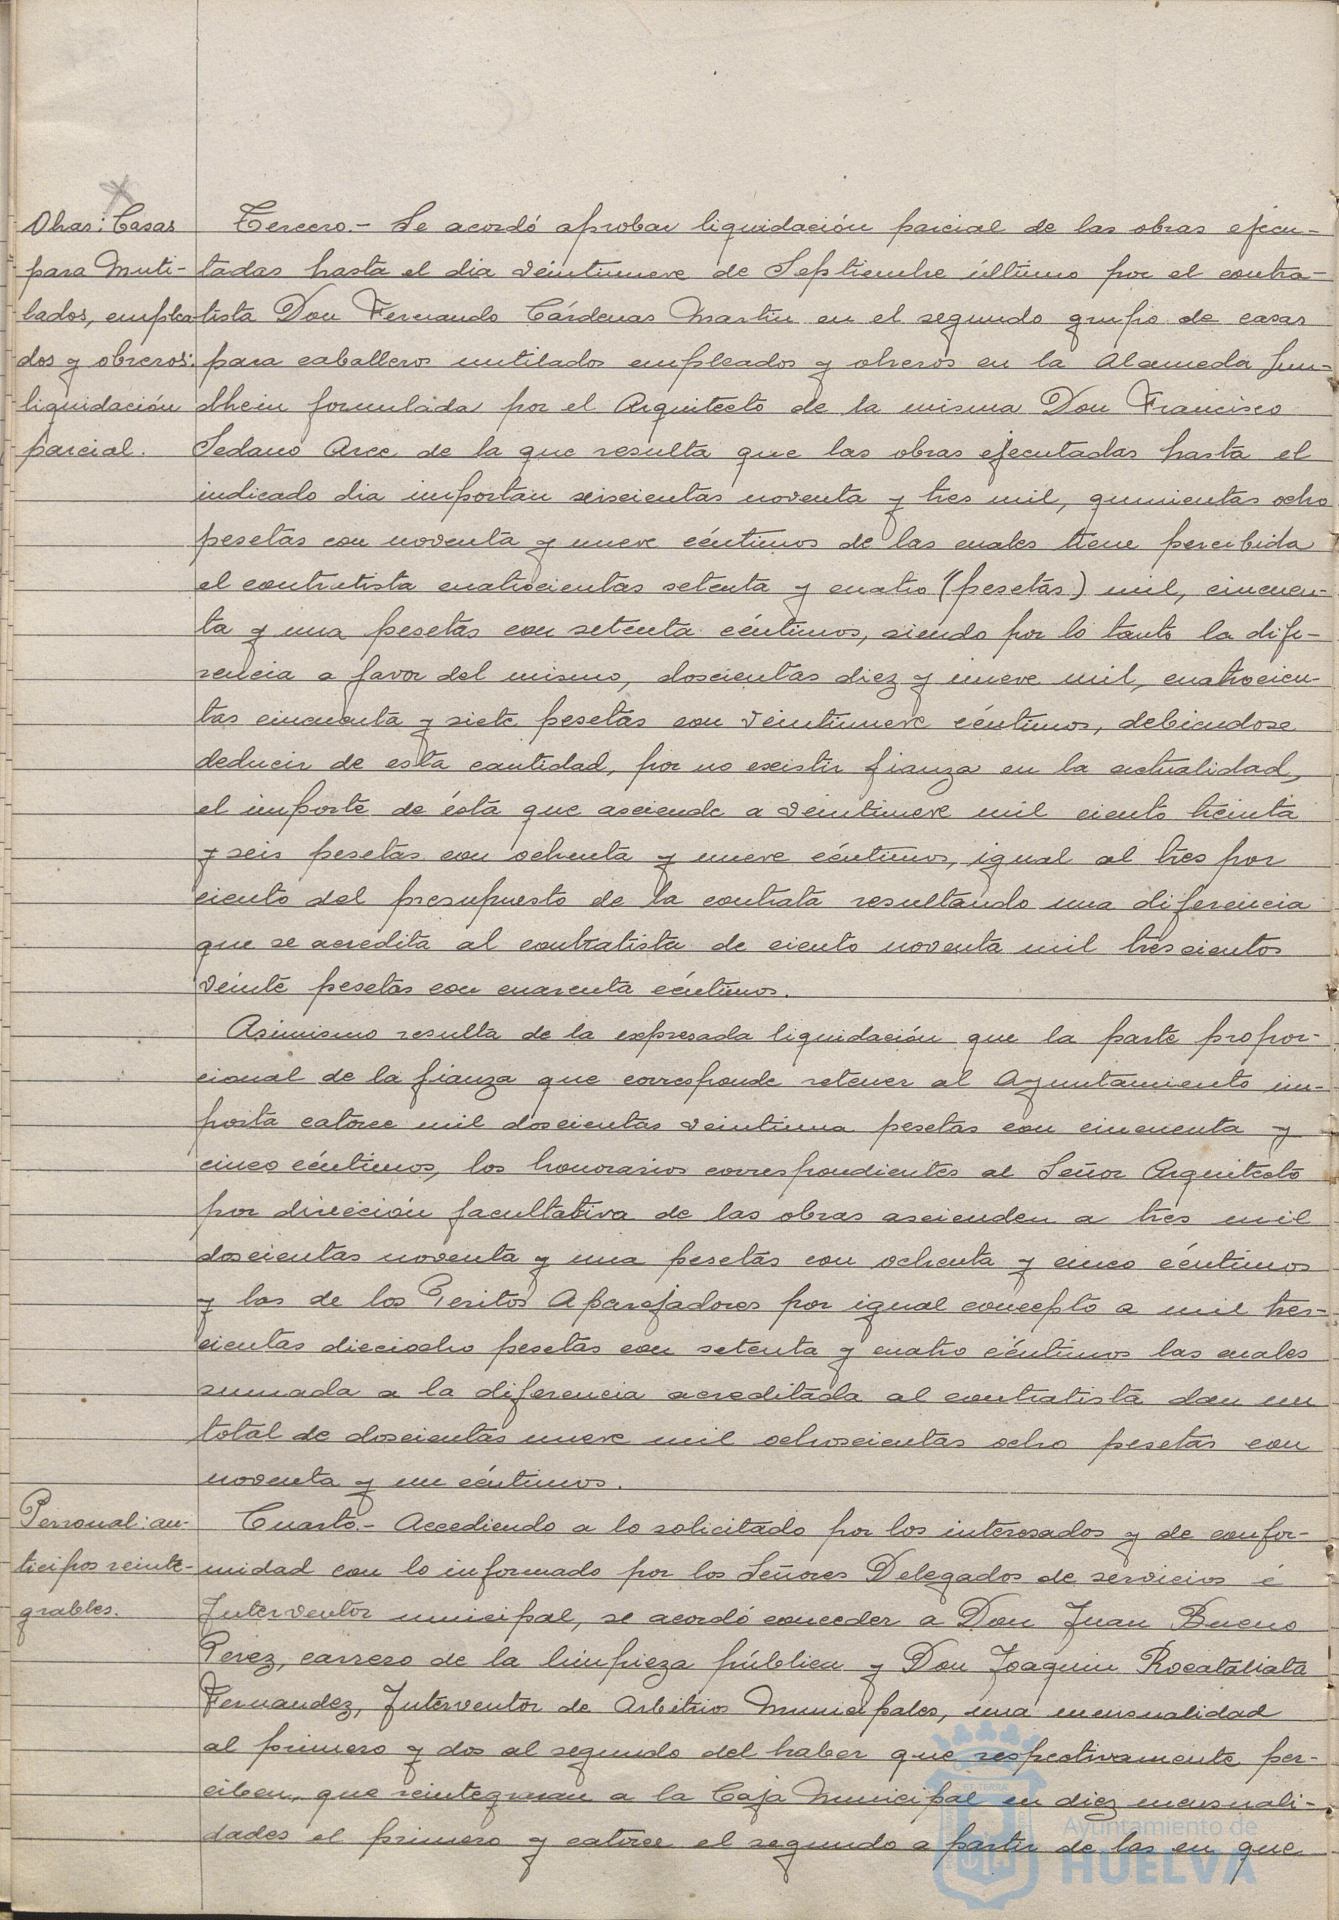 Obras: Casas
para Muti-
lados, emplea-
dos y obreros:
liquidación
parcial.
Tercero.- Se acordó aprobar liquidación parcial de las obras ejecu-
tadas hasta el dia veintinueve de Septiembre último por el contra-
tista Don Fernando Cárdenas Martin en el segundo grupo de casas
para caballeros mutilados empleados y obreros en la Alameda Sun-
dhein formulada por el Arquitecto de la misma Don Francisco
Sedano Arce de la que resulta que las obras ejecutadas hasta el
indicado dia importan seiscientas noventa y tres mil, quinientas ocho
pesetas con noventa y nueve céntimos de las cuales tiene percibida
el contratista cuatrocientas setenta y cuatro (pesetas) mil, cincuen-
ta y una pesetas con setenta céntimos, siendo por lo tanto la dife-
rencia a favor del mismo, doscientas diez y nueve mil, cuatrocien-
tas cincuenta y siete pesetas con veintinueve céntimos, debiendose
deducir de esta cantidad, por no existir fianza en la actualidad,
el importe de ésta que asciende a veintinueve mil ciento treinta
y seis pesetas con ochenta y nueve céntimos, igual al tres por
ciento del presupuesto de la contrata resultando una diferencia
que se acredita al contratista de ciento noventa mil trescientos
veinte pesetas con cuarenta céntimos.
Asimismo resulta de la expresada liquidación que la parte propor-
cional de la fianza que corresponde retener al Ayuntamiento im-
porta catorce mil doscientas veintiuna pesetas con cincuenta y
cinco céntimos, los honorarios correspondientes al Señor Arquitecto
por dirección facultativa de las obras ascienden a tres mil
doscientas noventa y una pesetas con ochenta y cinco céntimos
y los de los Peritos Aparejadores por igual concepto a mil tres-
cientas dieciocho pesetas con setenta y cuatro céntimos las cuales
sumada a la diferencia acreditada al contratista dan un
total de doscientas nueve mil ochoscientas ocho pesetas con
noventa y un céntimos.
Personal: an-
ticipos reinte-
grables.
Cuarto.- Accediendo a lo solicitado por los interesados y de confor-
midad con lo informado por los Señores Delegados de servicios é
Interventor municipal, se acordó conceder a Don Juan Bueno
Perez, carrero de la limpieza pública y Don Joaquin Rocataliata
Fernandez, Interventor de Arbitrios Municipales, una mensualidad
al primero y dos al segundo del haber que respectivamente per-
ciben, que reintegraran a la Caja Municipal en diez mensuali-
dades el primero y catorce el segundo a partir de las en que
ET TERRA
Ayuntamiento de
HUELVA